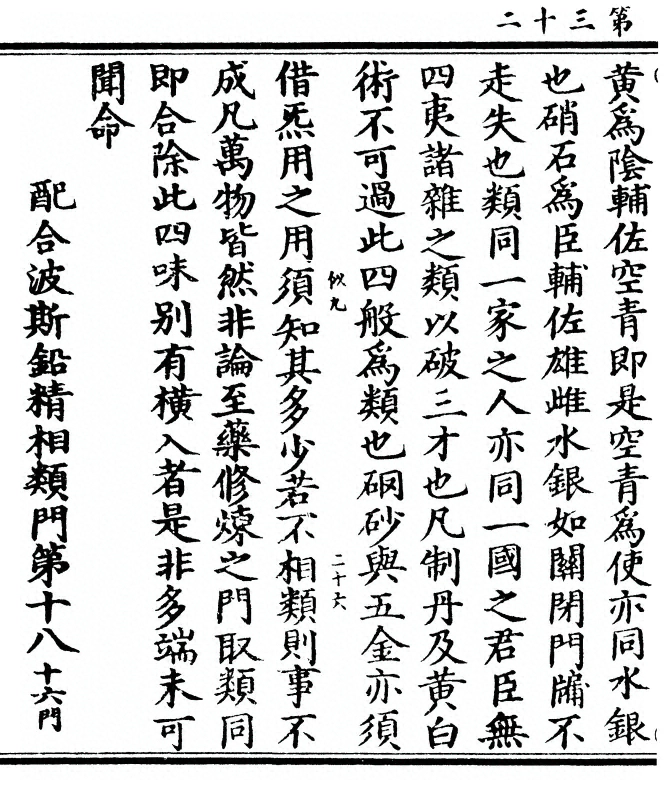 第三十二
黄爲陰輔佐空青即是空青爲使亦同水銀
也硝石爲臣輔佐雄雌水銀如關閉門牖不
走失也類同一家之人亦同一國之君臣無
四夷諸雜之類以破三才也凡制丹及黄白
術不可過此四般爲類也硇砂與五金亦須
似九
二十六
借炁用之用須知其多少若不相類則事不
成凡萬物皆然非論至藥修煉之門取類同
即合除此四味别有橫入者是非多端未可
聞命
配合波斯鉛精相類門第十八十六門